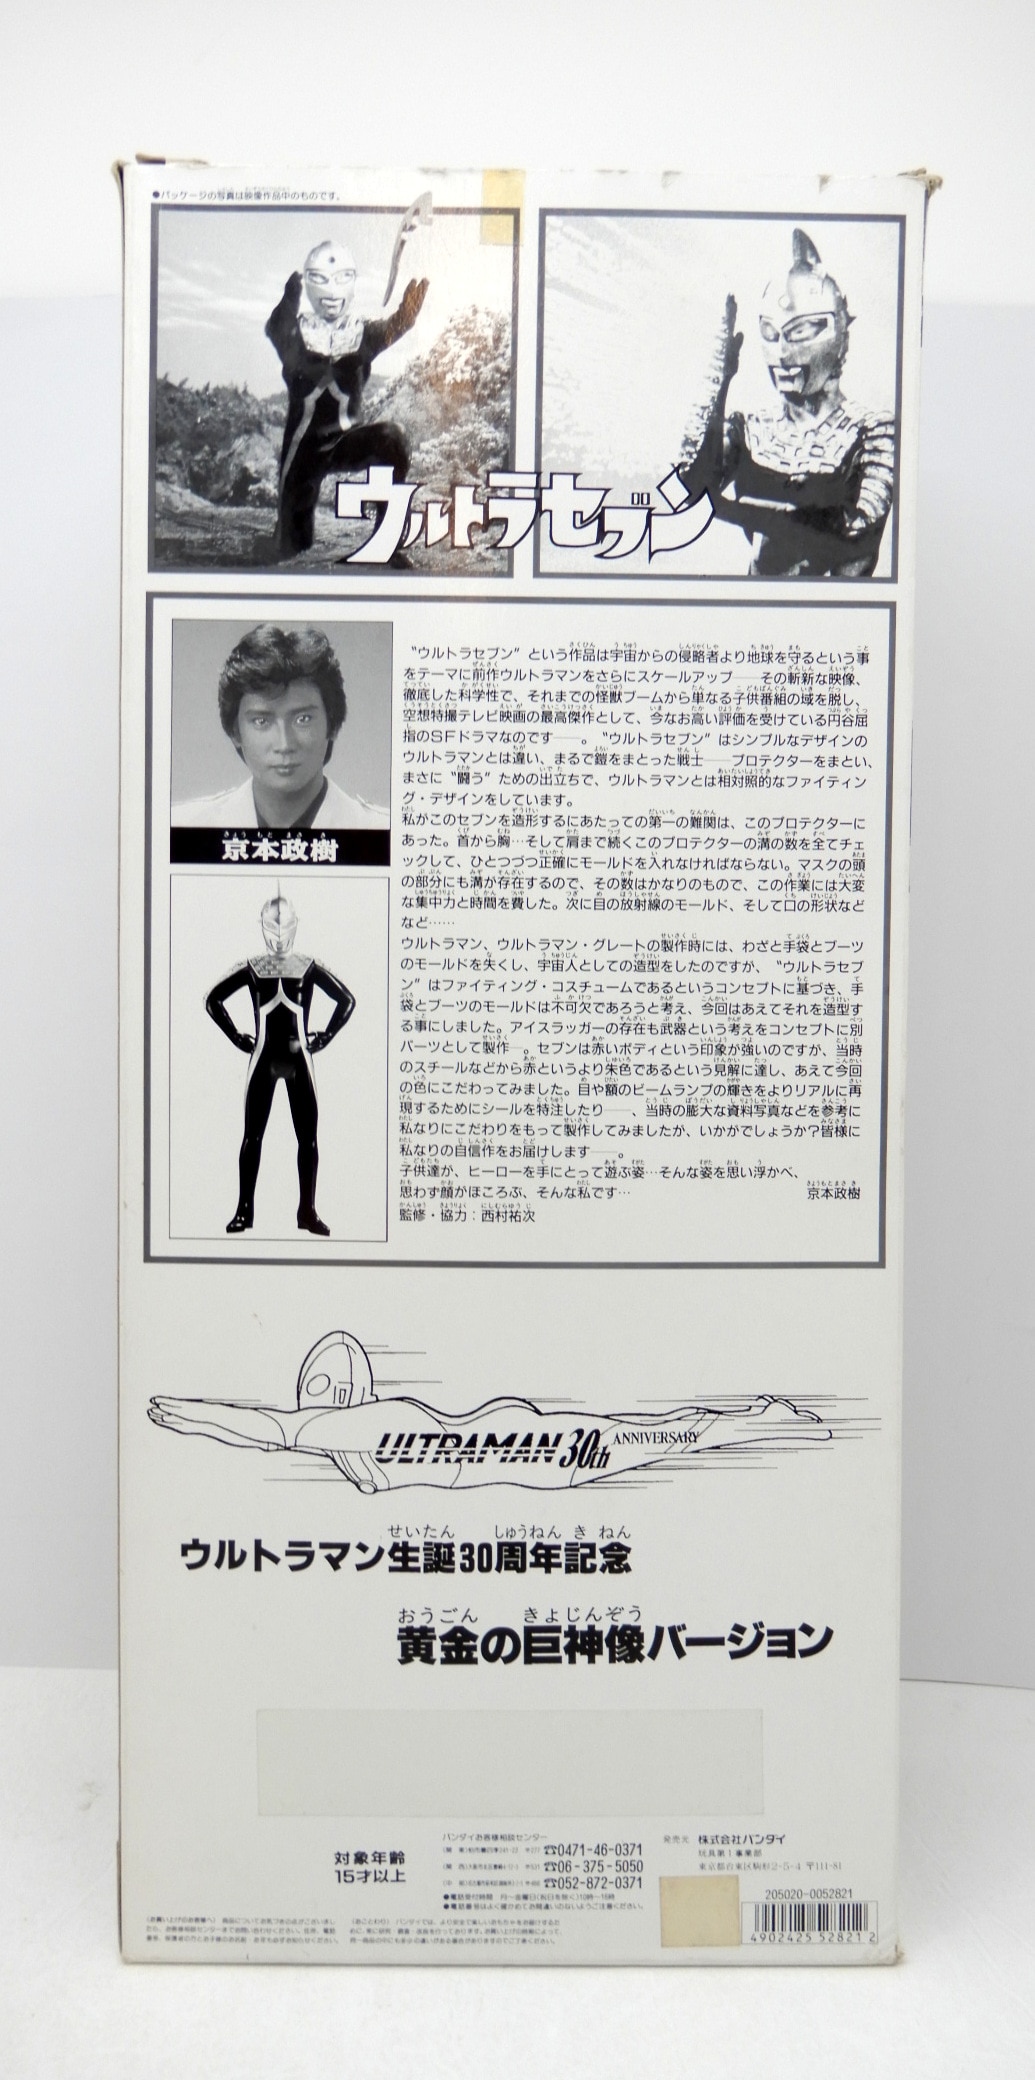 ●パッケージの写真は映像作品中のものです。
ウルトラセブン
京本政樹
きょう もと まさ き
“ウルトラセブン”という作品は宇宙からの侵略者より地球を守るという事
をテーマに前作ウルトラマンをさらにスケールアップ──その斬新な映像、
徹底した科学性で、それまでの怪獣ブームから単なる子供番組の域を脱し、
空想特撮テレビ映画の最高傑作として、今なお高い評価を受けている円谷屈
指のSFドラマなのです──。“ウルトラセブン”はシンプルなデザインの
ウルトラマンとは違い、まるで鎧をまとった戦士──プロテクターをまとい、
まさに“闘う”ための出立ちで、ウルトラマンとは相対照的なファイティン
グ・デザインをしています。
私がこのセブンを造形するにあたっての第一の難関は、このプロテクターに
あった。首から胸…そして肩まで続くこのプロテクターの溝の数を全てチェ
ックして、ひとつづつ正確にモールドを入れなければならない。マスクの頭
の部分にも溝が存在するので、その数はかなりのもので、この作業には大変
な集中力と時間を費した。次に目の放射線のモールド、そして口の形状など
など……
ウルトラマン、ウルトラマン・グレートの製作時には、わざと手袋とブーツ
のモールドを失くし、宇宙人としての造型をしたのですが、“ウルトラセブ
ン”はファイティング・コスチュームであるというコンセプトに基づき、手
袋とブーツのモールドは不可欠であろうと考え、今回はあえてそれを造型す
る事にしました。アイスラッガーの存在も武器という考えをコンセプトに別
パーツとして製作─。セブンは赤いボディという印象が強いのですが、当時
のスチールなどから赤というより朱色であるという見解に達し、あえて今回
の色にこだわってみました。目や額のビームランプの輝きをよりリアルに再
現するためにシールを特注したり──、当時の膨大な資料写真などを参考に
私なりにこだわりをもって製作してみましたが、いかがでしょうか?皆様に
私なりの自信作をお届けします──。
子供達が、ヒーローを手にとって遊ぶ姿…そんな姿を思い浮かべ、
思わず顔がほころぶ、そんな私です… 京本政樹
監修・協力：西村祐次
ULTRAMAN 30th ANNIVERSARY
せいたん しゅうねん き ねん
ウルトラマン生誕30周年記念
おうごん きょじんぞう
黄金の巨神像バージョン
対象年齢
15才以上
バンダイお客様相談センター
☎0471-46-0371
☎06-375-5050
☎052-872-0371
●電話受付時間 月〜金曜日(祝日を除く)10時〜16時
●電話番号はよく確かめてお間違いのないようご注意ください。
発売元 株式会社バンダイ
玩具第1事業部
東京都台東区駒形2-5-4 〒111-81
205020-0052821
4902425 52821 2